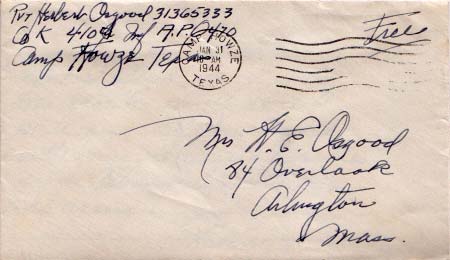 Pvt Herbert Osgood 31365333
Co K 410th Inf A.P.O 470
Camp Howze Texas
CAMP HOWZE
JAN 31
AM
1944
TEXAS
Free
Mrs H. E. Osgood
84 Overlook
Arlington
Mass.